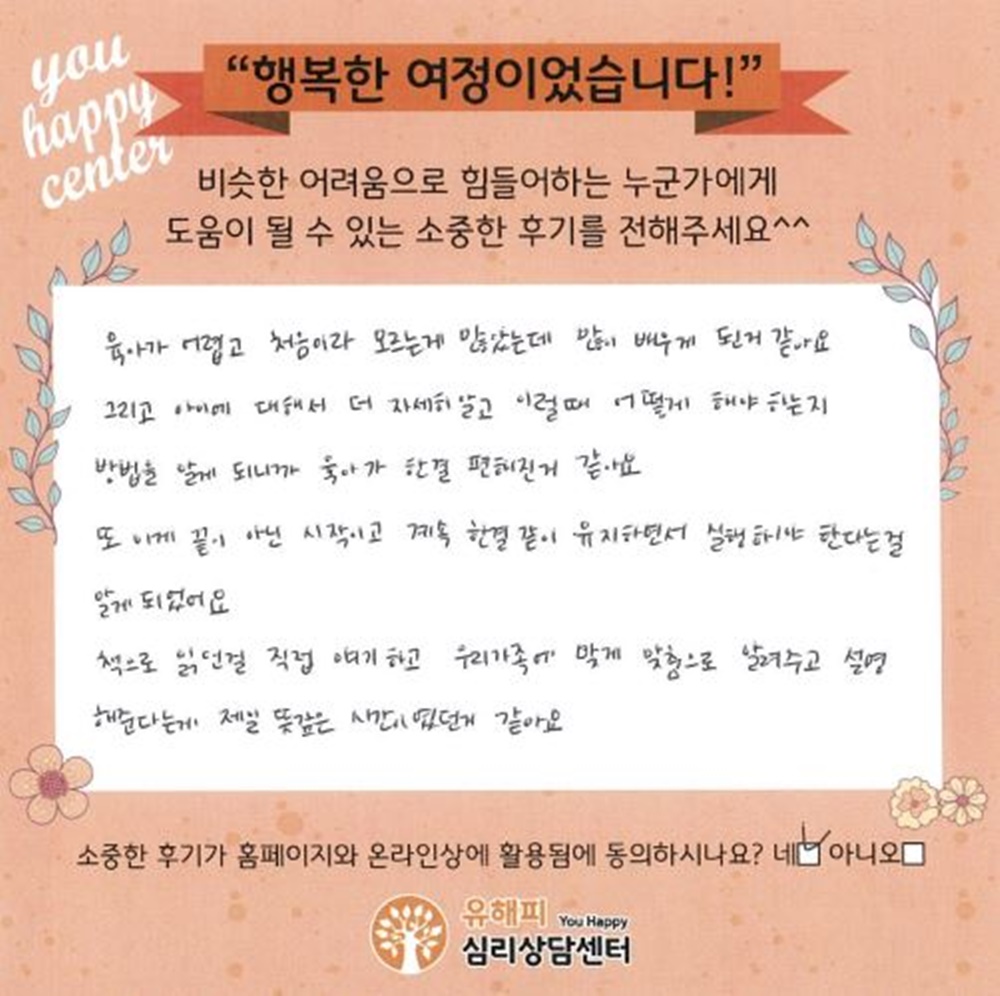 you
happy
center
“행복한 여정이었습니다!”
비슷한 어려움으로 힘들어하는 누군가에게
도움이 될 수 있는 소중한 후기를 전해주세요^^
육아가 어렵고 처음이라 모르는게 많았는데 많이 배우게 된거 같아요
그리고 아이에 대해서 더 자세히알고 이럴때 어떻게 해야 하는지
방법을 알게 되니까 육아가 한결 편해진거 같아요
또 이게 끝이 아닌 시작이고 계속 한결 같이 유지하면서 실행 해야 한다는걸
알게 되었어요
책으로 읽던걸 직접 얘기하고 우리가족에 맞게 맞춤으로 알려주고 설명
해준다는게 제일 뜻깊은 시간이였던거 같아요
소중한 후기가 홈페이지와 온라인상에 활용됨에 동의하시나요? 네 아니오
유해피 You Happy
심리상담센터